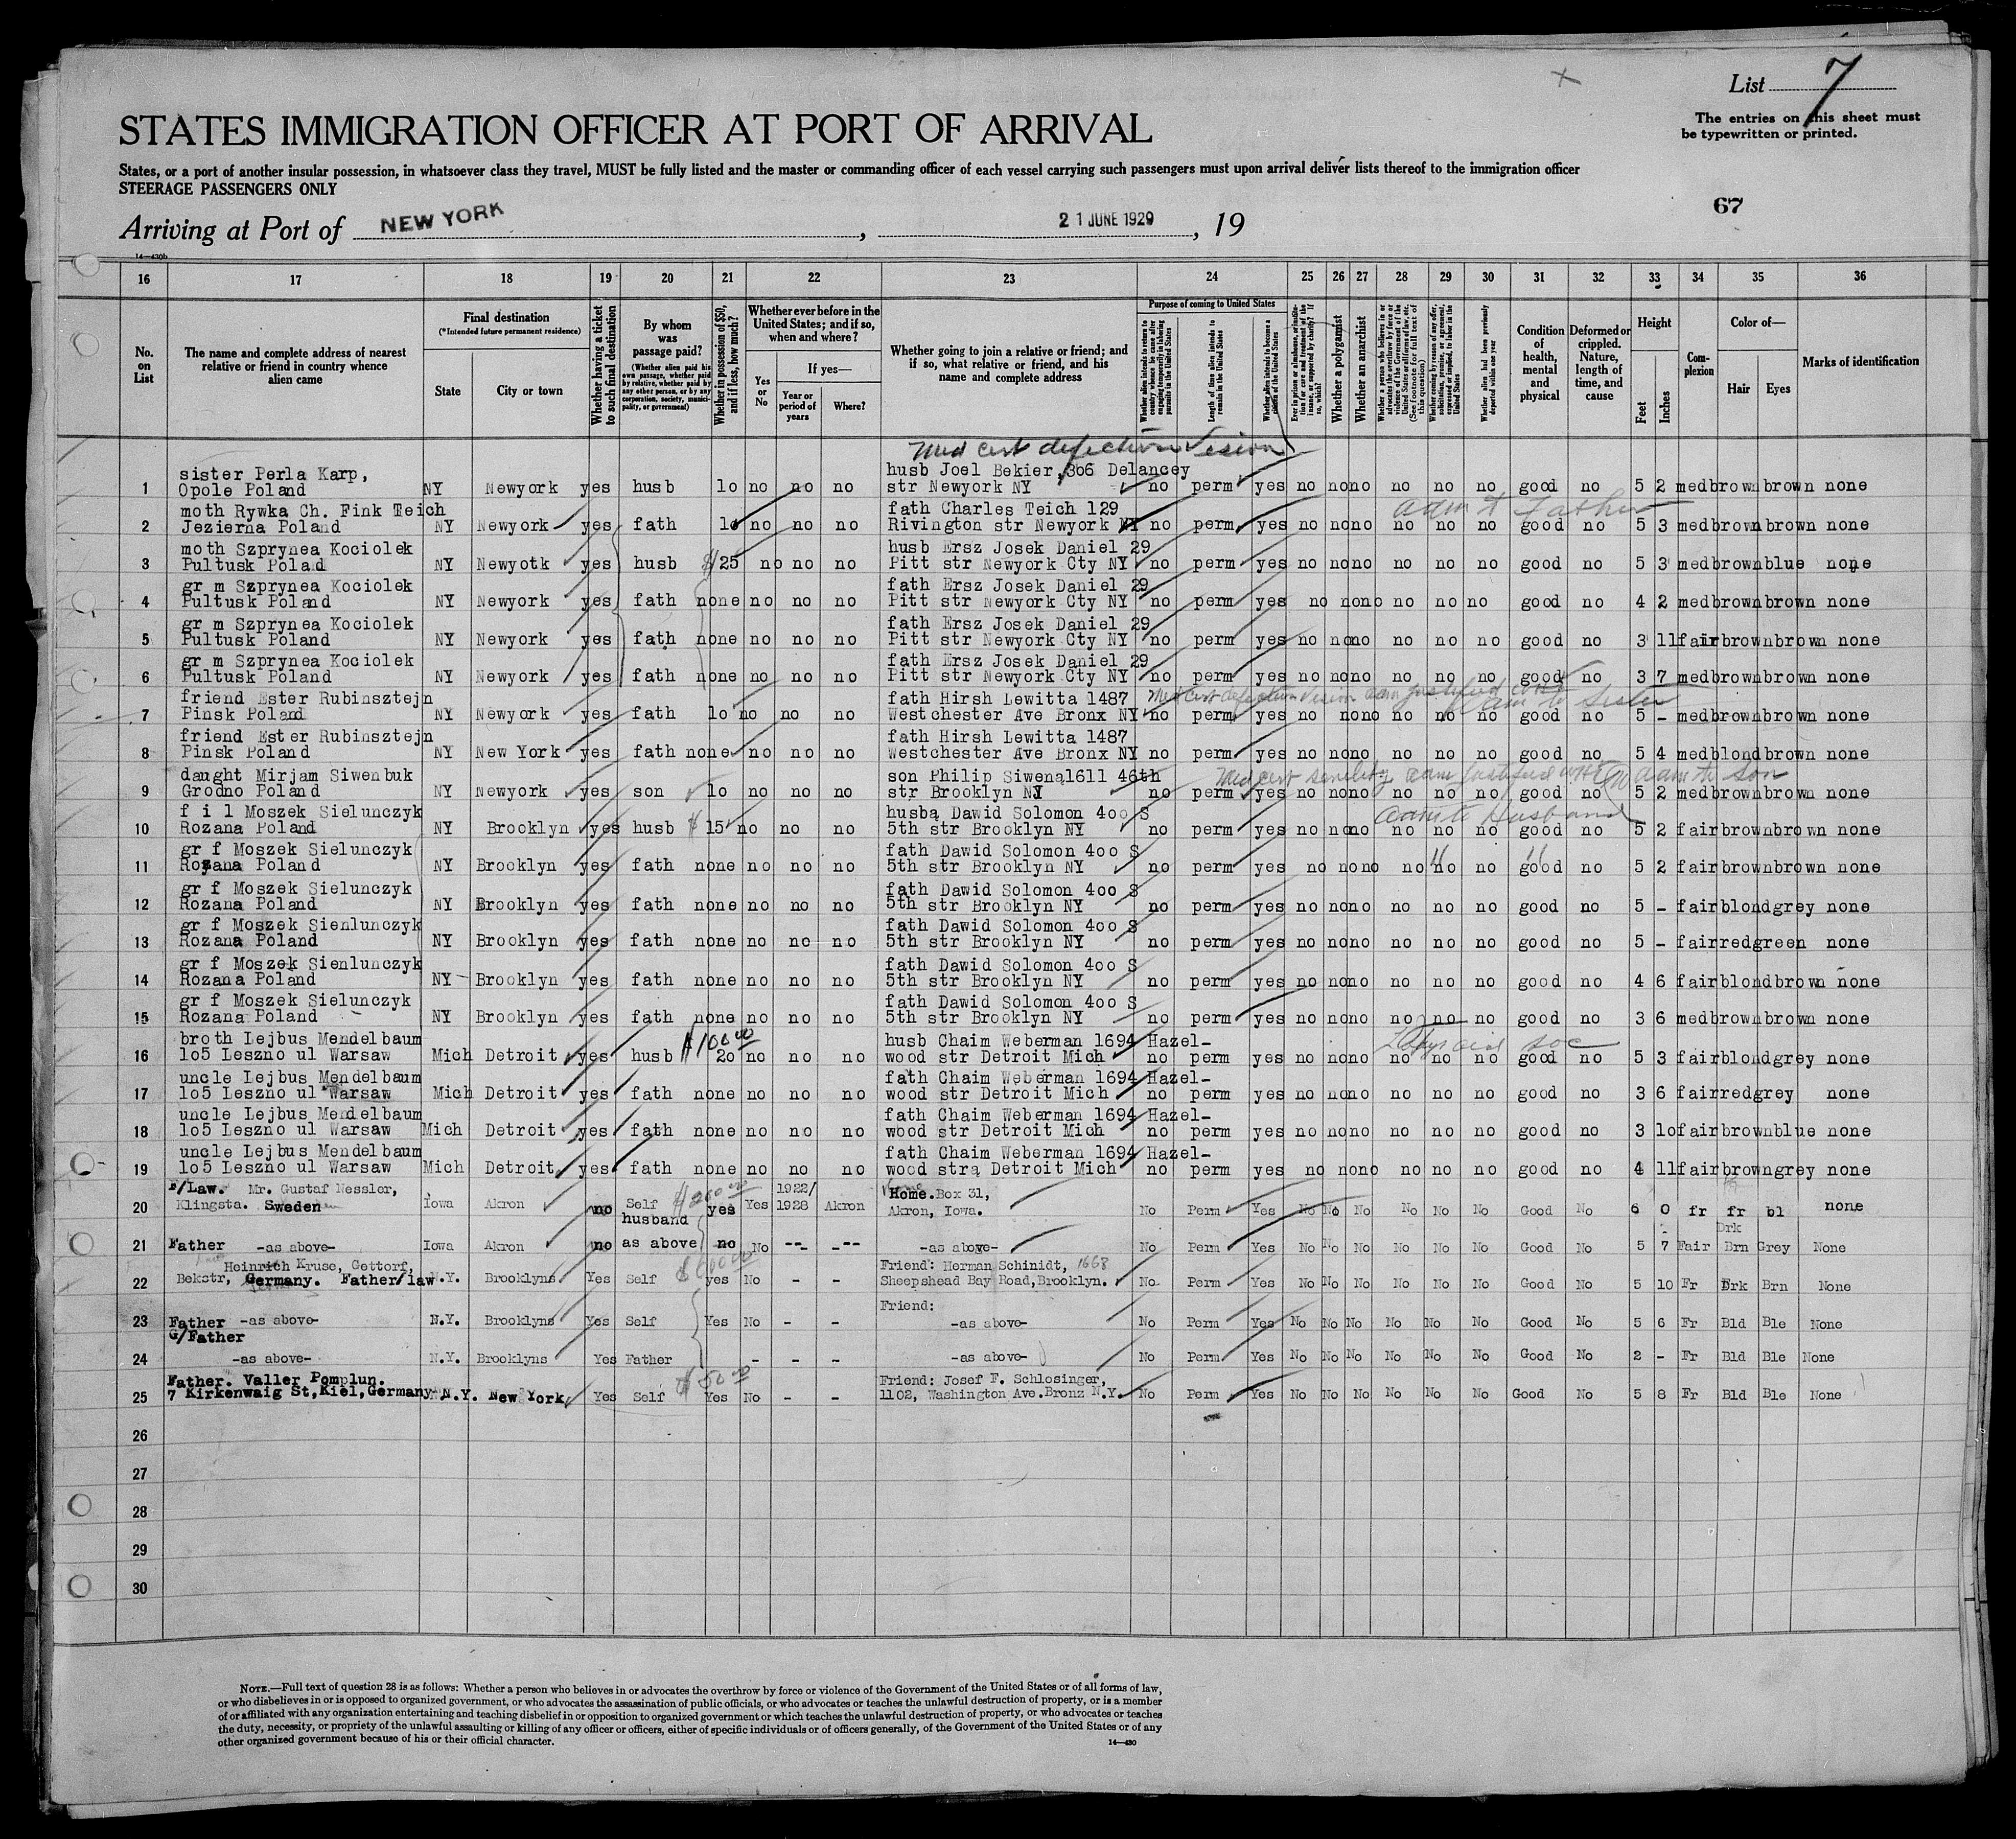 List 7
The entries on this sheet must
be typewritten or printed.
STATES IMMIGRATION OFFICER AT PORT OF ARRIVAL
States, or a port of another insular possession, in whatsoever class they travel, MUST be fully listed and the master or commanding officer of each vessel carrying such passengers must upon arrival deliver lists thereof to the immigration officer
STEERAGE PASSENGERS ONLY
67
Arriving at Port of NEW YORK, 21 JUNE 1929, 19
14—430b
16 17 18 19 20 21 22 23 24 25 26 27 28 29 30 31 32 33 34 35 36
No. on List
The name and complete address of nearest relative or friend in country whence alien came
Final destination
(*Intended future permanent residence)
State
City or town
Whether having a ticket to such final destination
By whom was passage paid?
(Whether alien paid his own passage, whether paid by relative, whether paid by any other person, or by any corporation, society, municipality, or government)
Whether in possession of $50, and if less, how much?
Whether ever before in the United States; and if so, when and where?
Yes or No
If yes—
Year or period of years
Where?
Whether going to join a relative or friend; and if so, what relative or friend, and his name and complete address
Purpose of coming to United States
Whether alien intends to return to country whence he came after engaging temporarily in laboring pursuits in the United States
Length of time alien intends to remain in the United States
Whether alien intends to become a citizen of the United States
Ever in prison or almshouse, or institution for care and treatment of the insane, or supported by charity? If so, which?
Whether a polygamist
Whether an anarchist
Whether a person who believes in or advocates the overthrow by force or violence of the Government of the United States or all forms of law, etc. (See footnote for full text of this question)
Whether coming by reason of any offer, solicitation, promise, or agreement, expressed or implied, to labor in the United States
Whether alien had been previously deported within one year
Condition of health, mental and physical
Deformed or crippled. Nature, length of time, and cause
Height
Feet
Inches
Complexion
Color of—
Hair
Eyes
Marks of identification
Med cert defective vision
sister Perla Karp, husb Joel Bekier, 306 Delancey
1 Opole Poland NY Newyork yes husb 1o no no no str Newyork NY no perm yes no no no no no no good no 5 2 med brown brown none
moth Rywka Ch. Fink Teich fath Charles Teich 129 adm to Father
2 Jezierna Poland NY Newyork yes fath 1o no no no Rivington str Newyork NY no perm yes no no no no no no good no 5 3 med brown brown none
moth Szprynea Kociolek husb Ersz Josek Daniel 29
3 Pultusk Polad NY Newyotk yes husb $25 no no no Pitt str Newyork Cty NY no perm yes no no no no no no good no 5 3 med brown blue none
gr m Szprynea Kociolek fath Ersz Josek Daniel 29
4 Pultusk Poland NY Newyork yes fath none no no no Pitt str Newyork Cty NY no perm yes no no no no no no good no 4 2 med brown brown none
gr m Szprynea Kociolek fath Ersz Josek Daniel 29
5 Pultusk Poland NY Newyork yes fath none no no no Pitt str Newyork Cty NY no perm yes no no no no no no good no 3 11 fair brown brown none
gr m Szprynea Kociolek fath Ersz Josek Daniel 29
6 Pultusk Poland NY Newyork yes fath none no no no Pitt str Newyork Cty NY no perm yes no no no no no no good no 3 7 med brown brown none
friend Ester Rubinsztejn fath Hirsh Lewitta 1487 Med cert defective vision adm to sister
7 Pinsk Poland NY Newyork yes fath 1o no no no Westchester Ave Bronx NY no perm yes no no no no no no good no 5 - med brown brown none
friend Ester Rubinsztejn fath Hirsh Lewitta 1487
8 Pinsk Poland NY New York yes fath none no no no Westchester Ave Bronx NY no perm yes no no no no no no good no 5 4 med blond brown none
daught Mirjam Siwenbuk son Philip Siwena 1611 46th Med cert senility adm to son
9 Grodno Poland NY Newyork yes son 1o no no no str Brooklyn NY no perm yes no no no no no no good no 5 2 med brown brown none
f i l Moszek Sielunczyk husba Dawid Solomon 4oo S adm to Husband
10 Rozana Poland NY Brooklyn yes husb $15 no no no 5th str Brooklyn NY no perm yes no no no no no no good no 5 2 fair brown brown none
gr f Moszek Sielunczyk fath Dawid Solomon 4oo S
11 Rozana Poland NY Brooklyn yes fath none no no no 5th str Brooklyn NY no perm yes no no no no no no good no 5 2 fair brown brown none
gr f Moszek Sielunczyk fath Dawid Solomon 4oo S
12 Rozana Poland NY Brooklyn yes fath none no no no 5th str Brooklyn NY no perm yes no no no no no no good no 5 - fair blond grey none
gr f Moszek Sienlunczyk fath Dawid Solomon 4oo S
13 Rozana Poland NY Brooklyn yes fath none no no no 5th str Brooklyn NY no perm yes no no no no no no good no 5 - fair red green none
gr f Moszek Sienlunczyk fath Dawid Solomon 4oo S
14 Rozana Poland NY Brooklyn yes fath none no no no 5th str Brooklyn NY no perm yes no no no no no no good no 4 6 fair blond brown none
gr f Moszek Sielunczyk fath Dawid Solomon 4oo S
15 Rozana Poland NY Brooklyn yes fath none no no no 5th str Brooklyn NY no perm yes no no no no no no good no 3 6 med brown brown none
broth Lejbus Mendelbaum $100.00 husb Chaim Weberman 1694 Hazel-
16 1o5 Leszno ul Warsaw Mich Detroit yes husb 2o no no no wood str Detroit Mich no perm yes no no no no no no good no 5 3 fair blond grey none
uncle Lejbus Mendelbaum fath Chaim Weberman 1694 Hazel-
17 1o5 Leszno ul Warsaw Mich Detroit yes fath none no no no wood str Detroit Mich no perm yes no no no no no no good no 3 6 fair red grey none
uncle Lejbus Mendelbaum fath Chaim Weberman 1694 Hazel-
18 1o5 Leszno ul Warsaw Mich Detroit yes fath none no no no wood str Detroit Mich no perm yes no no no no no no good no 3 1o fair brown blue none
uncle Lejbus Mendelbaum fath Chaim Weberman 1694 Hazel-
19 1o5 Leszno ul Warsaw Mich Detroit yes fath none no no no wood stra Detroit Mich no perm yes no no no no no no good no 4 11 fair brown grey none
F/Law. Mr. Gustaf Nessler, $200.00 1922/ Home. Box 31,
20 Klingsta. Sweden Iowa Akron no Self yes Yes 1928 Akron Akron, Iowa. No Perm Yes No No No No No No Good No 6 0 fr fr bl none
husband Drk
21 Father -as above- Iowa Akron no as above no No -- -- -as above- No Perm Yes No No No No No No Good No 5 7 Fair Brn Grey None
Heinrich Kruse, Gettorf, $600.00 Friend: Herman Schinidt, 1668
22 Bekstr, Germany. Father/law N.Y. Brooklyns. Yes Self yes No - - Sheepshead Bay Road, Brooklyn. No Perm Yes No No No No No No Good No 5 10 Fr Drk Brn None
Friend:
23 Father -as above- N.Y. Brooklyns Yes Self Yes No - - -as above- No Perm Yes No No No No No No Good No 5 6 Fr Bld Ble None
G/Father
24 -as above- N.Y. Brooklyns Yes Father - - - -as above- No Perm Yes No No No No No No Good No 2 - Fr Bld Ble None
Father. Valler Pomplun. $50.00 Friend: Josef F. Schlosinger,
25 7 Kirkenwaig St, Kiel, Germany N.Y. New York Yes Self Yes No - - 1102, Washington Ave. Bronz N.Y. No Perm Yes No No No No No No Good No 5 8 Fr Bld Ble None
26
27
28
29
30
NOTE.—Full text of question 28 is as follows: Whether a person who believes in or advocates the overthrow by force or violence of the Government of the United States or of all forms of law,
or who disbelieves in or is opposed to organized government, or who advocates the assassination of public officials, or who advocates or teaches the unlawful destruction of property, or is a member
of or affiliated with any organization entertaining and teaching disbelief in or opposition to organized government or which teaches the unlawful destruction of property, or who advocates or teaches
the duty, necessity, or propriety of the unlawful assaulting or killing of any officer or officers, either of specific individuals or of officers generally, of the Government of the United States or of any
other organized government because of his or their official character.
14—430